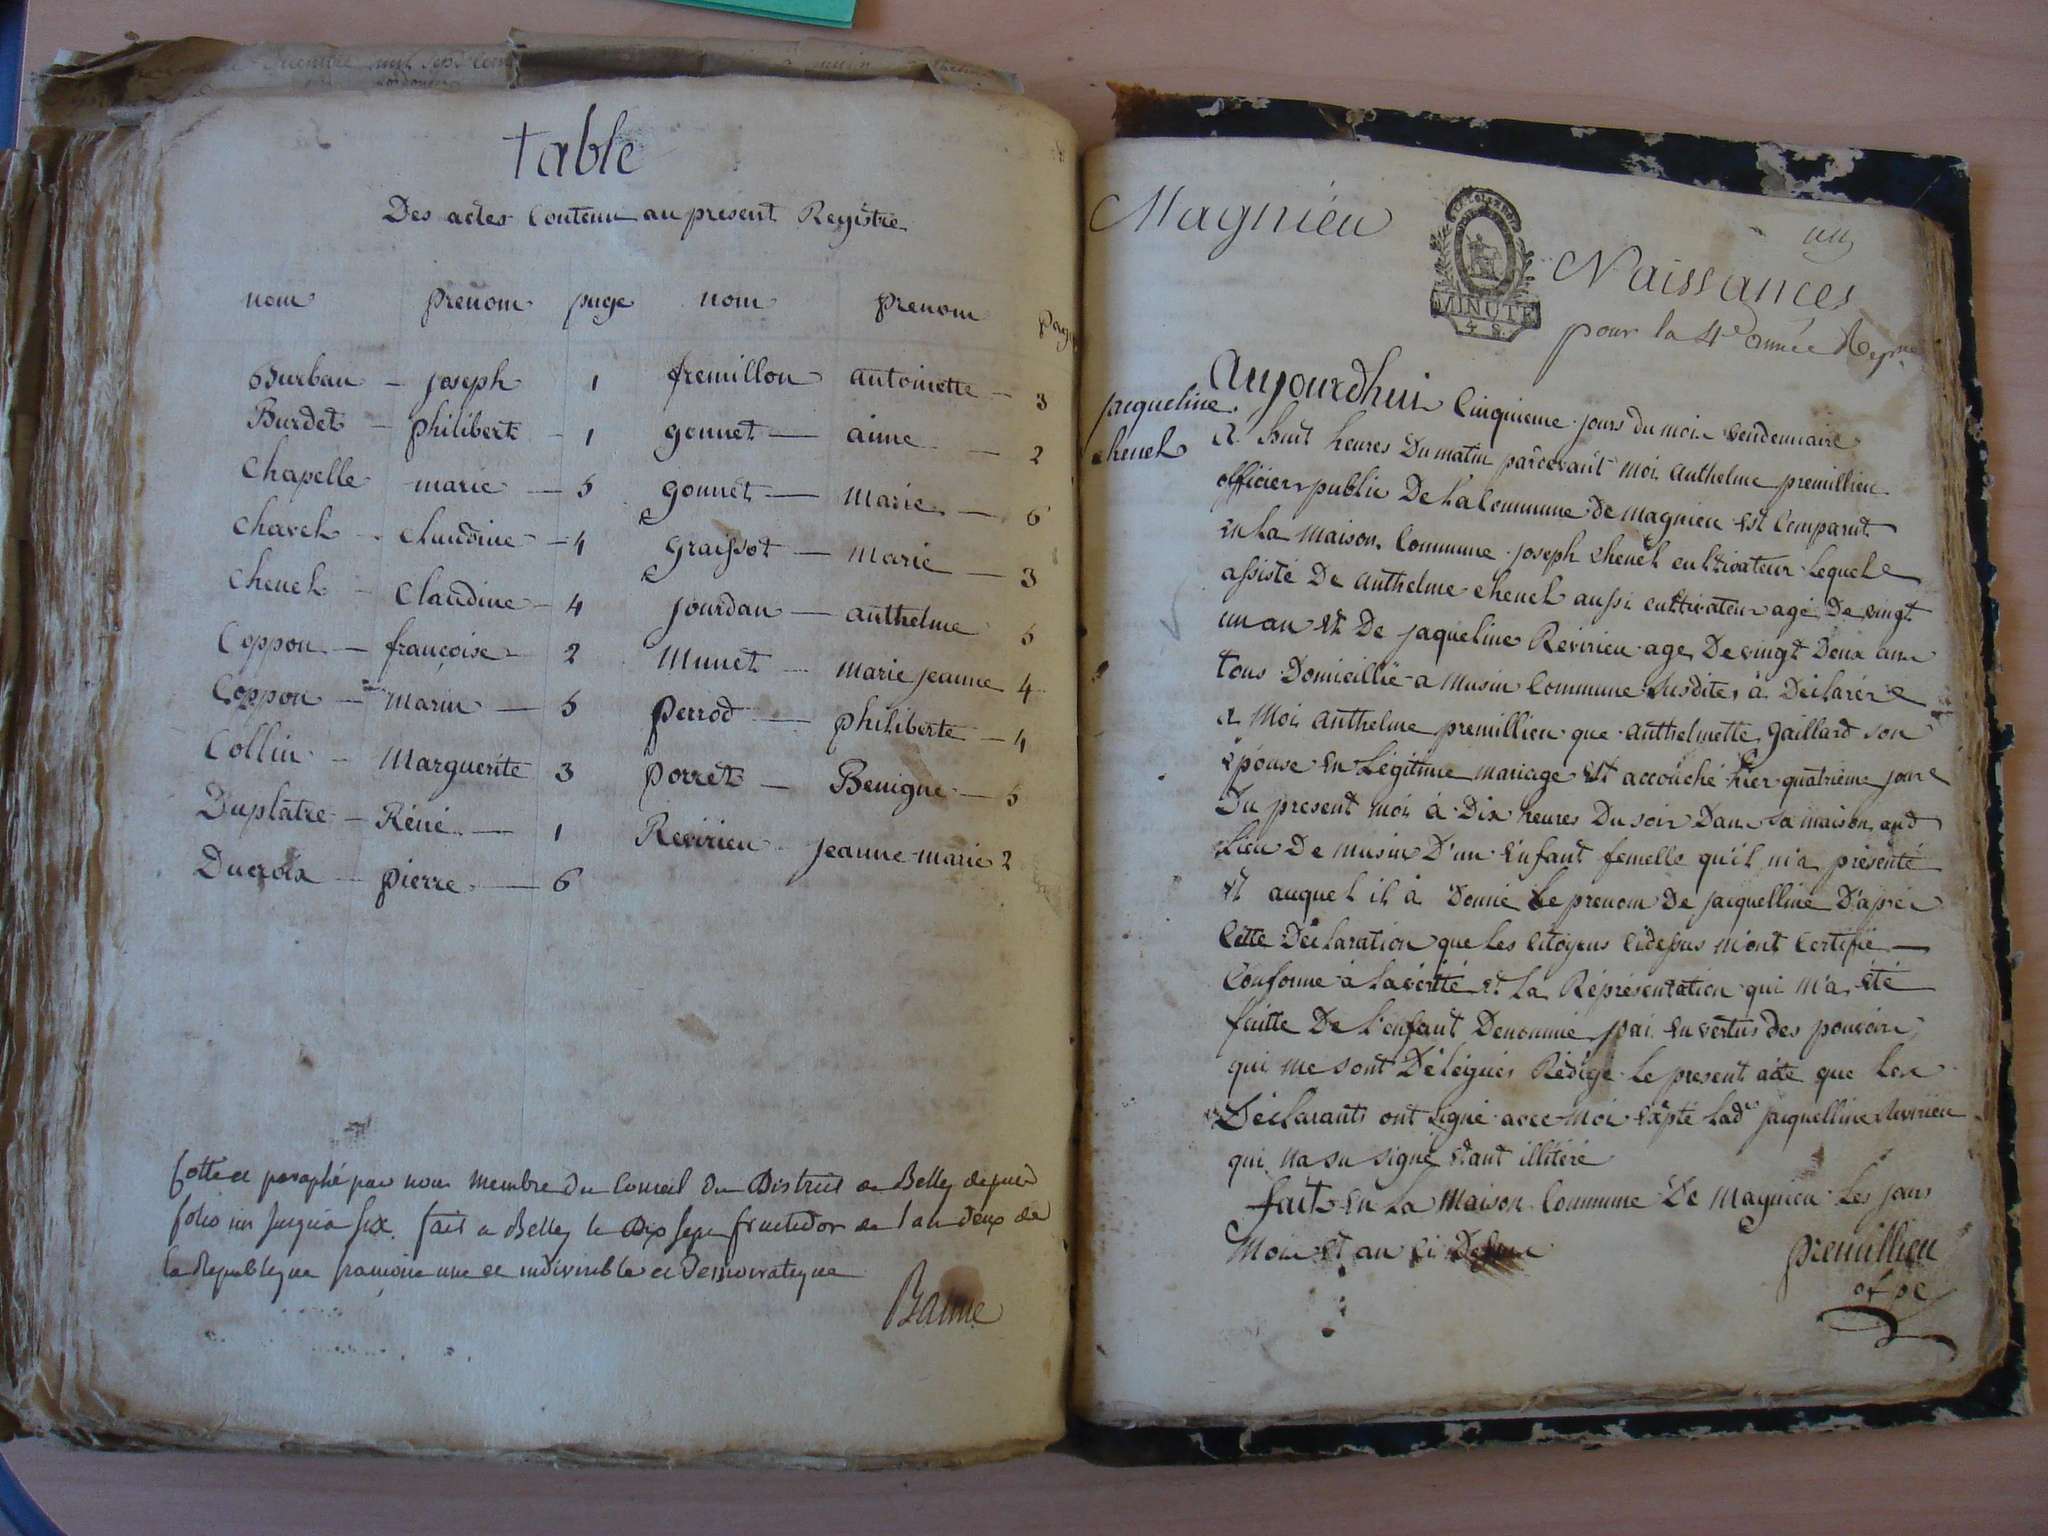 table
Des actes Contenu au present Registre
nom prenom page nom prenom page
Burban – joseph 1 fremillon antoinette – 3
Burdet – philiberte – 1 gonnet – aime – 2
Chapelle marie – 5 gonnet – marie – 6
Chavel – Claudine – 4 graissot – marie – 3
Chenel – Claudine – 4 jourdan – anthelme 5
Coppon – françoise – 2 Munet – marie jeanne 4
Coppon – marin – 5 perrod – philiberte – 4
Collin – Marguerite 3 porret – Benigne – 5
Duplatre – Réné – 1 Revirieu jeanne marie 2
Ducroix – pierre – 6
Cotté et paraphé par nous Membre du Conseil du District de Belley depuis
folio un jusqua six. fait a Belley le dix sept fructidor de l'an deux de
la Republique francoise une et indivisible et democratique
Magnieu
Naissances
pour la 4e année
MINUTE
4 S.
jacqueline
chenel
Aujourdhuit Cinquieme jours du mois vendemiaire
a huit heures Du matin pardevant moi anthelme premillieu
officier public De La Commune de magnieu est Comparut
en La maison Commune joseph chenel cultivateur Lequel
assisté De anthelme chenel aussi cultivateur agé De vingt
un an et De jaqueline Revirieu age De vingt Deux ans
tous Domicillié a musin Commune susdite à Déclarér
a Moi anthelme premillieu que anthelmette gaillard son
épouse en Légitime mariage est accouché hier quatrième jour
Du present mois à Dix heures Du soir Dans sa maison aud
Lieu De musin D'un enfant femelle qu'il m'a présenté
et auquel il à Donné Le prenom De jacquelline D'après
Cette Déclaration que Les Citoyens cidessus m'ont Certifié –
Conforme à La vérité et La Réprésentation qui m'a été
faitte De L'enfant Denommé jai en vertus des pouvoirs
qui me sont Délégués Rédigé Le present acte que Les
Déclarants ont signé avec Moi expté Lade jacquelline Revirieu
qui na su signé étant illitéré
fait en La maison Commune De Magnieu Les jours
Mois et an ci
premillieu
of pc